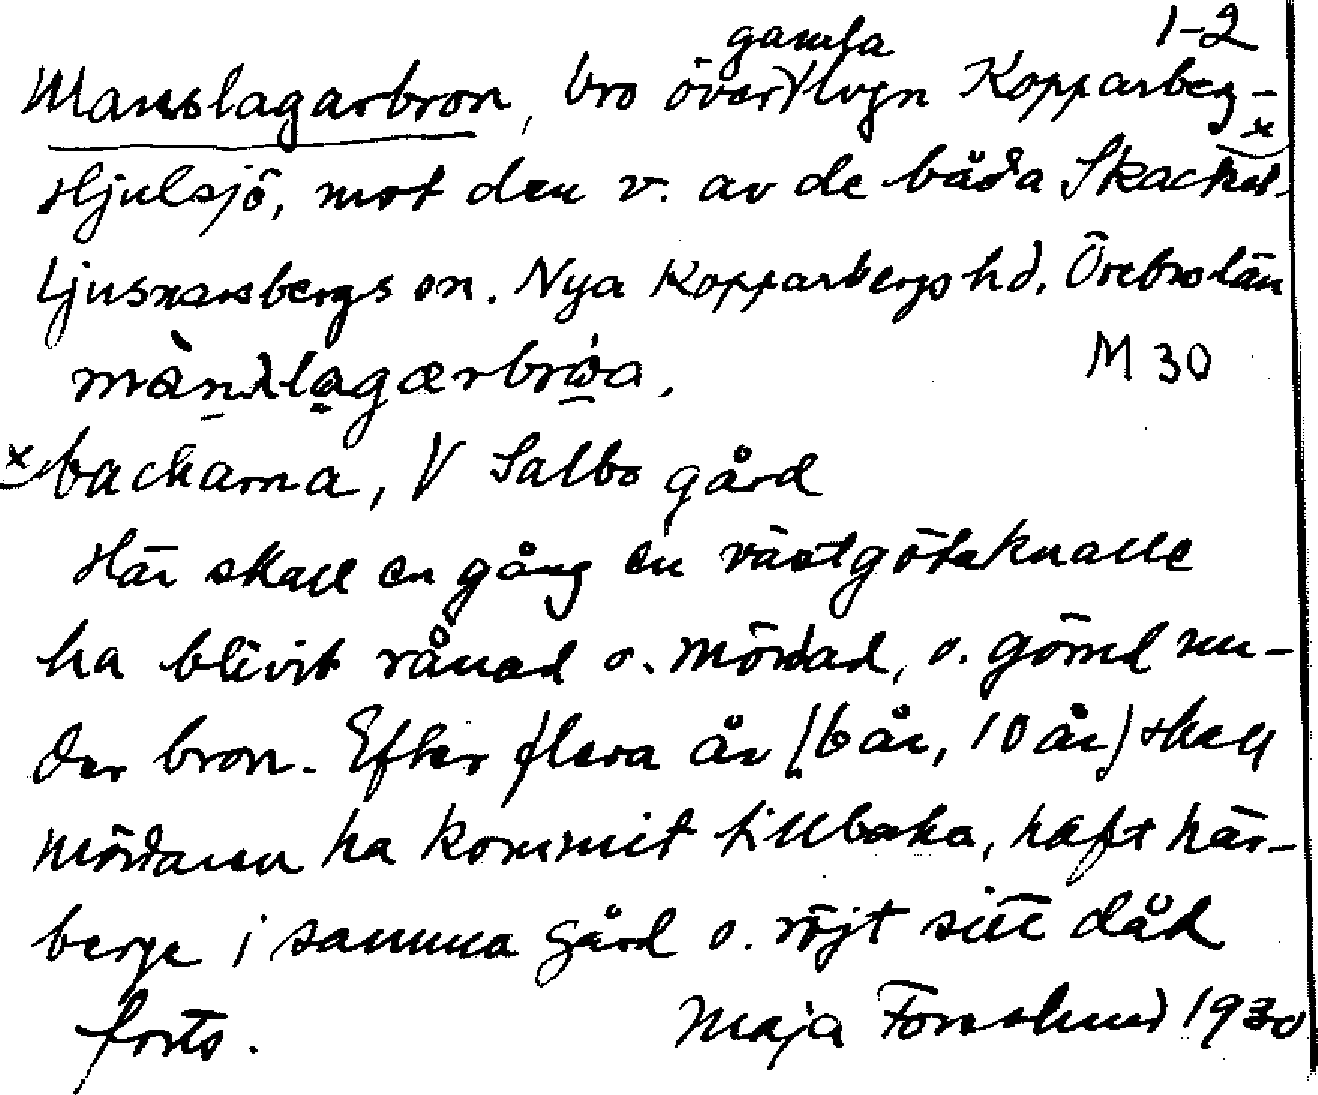 1-2
gamla
Manslagarbron, bro över Hvgn Kopparberg-
Hjulsjö, mot den v. av de båda Skackel-
Ljusnarsbergs sn. Nya Kopparbergs hd. Örebro län
M 30
x backarna, V Salbo gård
Här skall en gång en västgötaknalle
ha blivit rånad o. mördad, o. gömd un-
der bron. Efter flera år (6 år, 10 år) skall
mördaren ha kommit tillbaka, haft här-
berge i samma gård o. röjt sitt dåd
forts. Maja Forsslund 1930